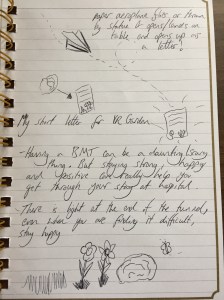 paper aeroplane flies or thrown
by statue & opens/lands on
table and opens up as
a letter.
My short letter for VR Garden
- Having a BMT can be a daunting/scary
thing. But staying strong, happy
and positive and really help you
get through your stay at hospital
- There is light at the end of the tunnel,
Even when you are finding it difficult,
stay happy